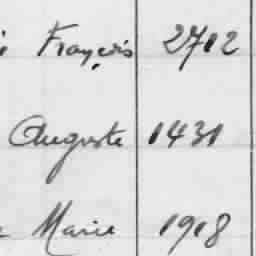 François 2712
Auguste 1431
Marie 1918